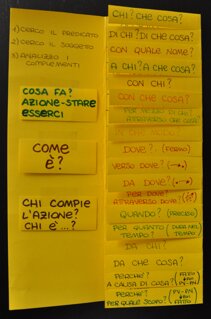 1) CERCO IL PREDICATO
2) CERCO IL SOGGETTO
3) ANALIZZO I
COMPLEMENTI
COSA FA?
AZIONE-STARE
ESSERCI
COME
È?
CHI COMPIE
L'AZIONE?
CHI E'...?
CHI? CHE COSA?
DI CHI? DI CHE COSA?
CON QUALE NOME?
A CHI? A CHE COSA?
CON CHI?
CON CHE COSA?
PER MEZZO DI CHI?
ATTRAVERSO CHE COSA
IN CHE MODO?
DOVE? (FERMO)
VERSO DOVE?
DA DOVE?
PER DOVE?
ATTRAVERSO DOVE?
QUANDO? (PRECISO)
PER QUANTO TEMPO? (DURA NEL TEMPO)
DA CHI?
DA CHE COSA?
PERCHÉ?
A CAUSA DI COSA? (PN-PV)
PERCHÉ? (PV-PN)
PER QUALE SCOPO?